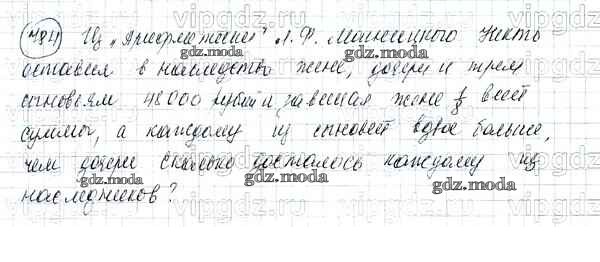 784 Из „Арифметики" Л. Ф. Магницкого Некто
оставил в наследство жене, дочери и трем
сыновьям 48000 рублей и завещал жене 1/8 всей
суммы, а каждому из сыновей вдвое больше,
чем дочери Сколько досталось каждому из
наследников?
vipgdz.com
gdz.moda